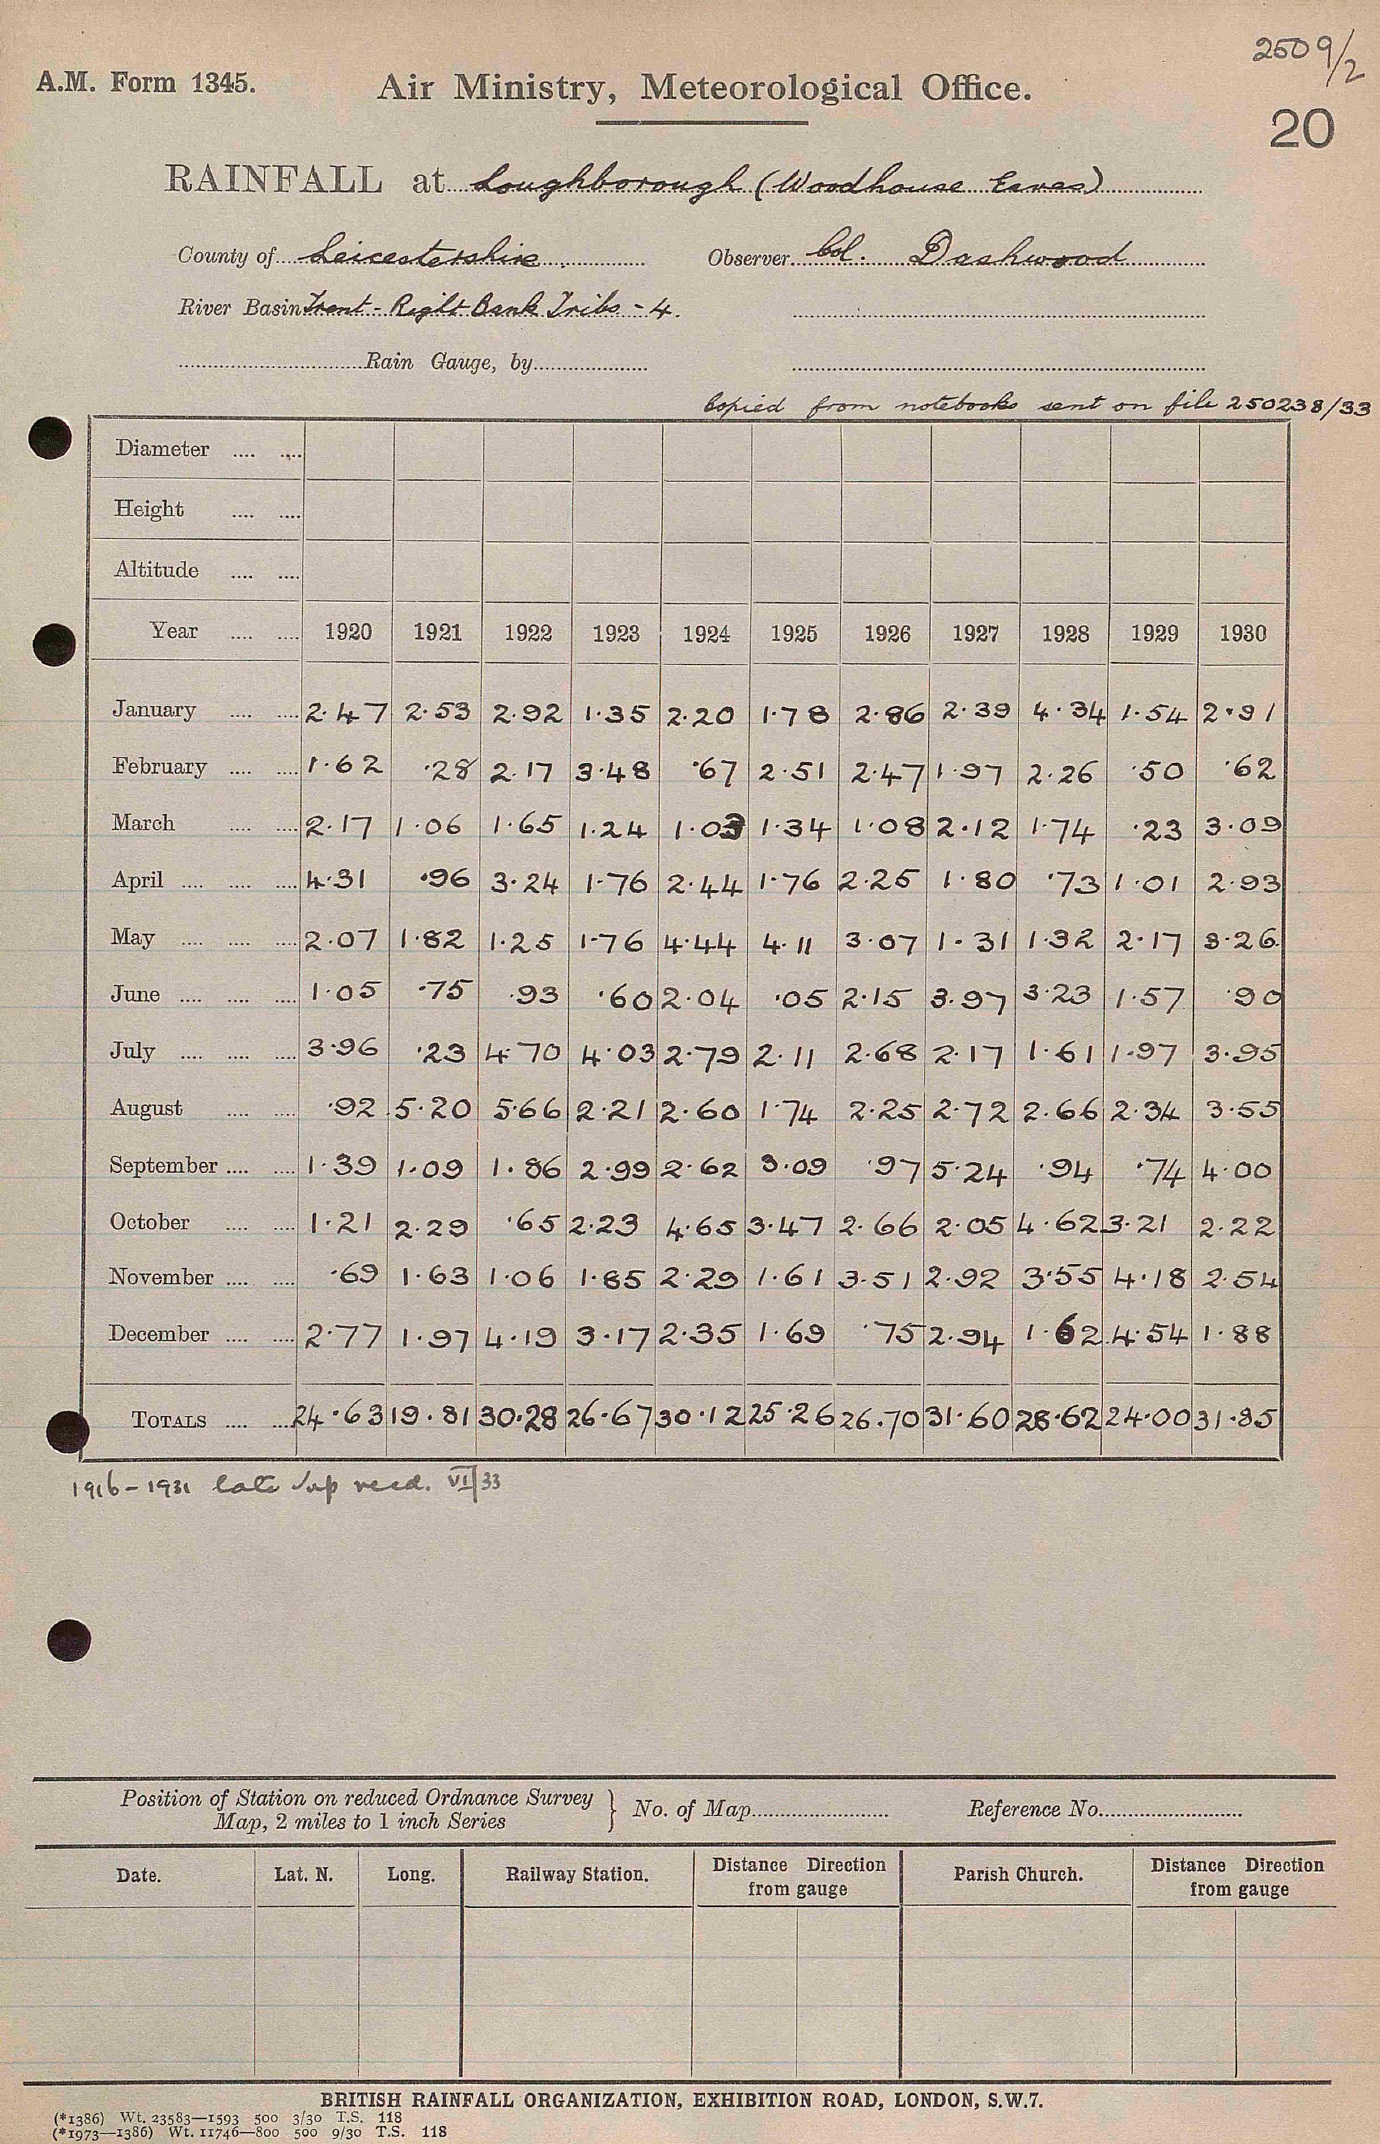 2509/2
A.M. Form 1345. Air Ministry, Meteorological Office.
20
RAINFALL at Loughborough (Woodhouse Eaves)
County of Leicestershire. Observer Col. Dashwood
River Basin Trent - Right Bank Tribs - 4.
Rain Gauge, by
Copied from notebooks sent on file 250238/33
Diameter
Height
Altitude
Year 1920 1921 1922 1923 1924 1925 1926 1927 1928 1929 1930
January 2.47 2.53 2.92 1.35 2.20 1.78 2.86 2.39 4.34 1.54 2.91
February 1.62 .28 2.17 3.48 .67 2.51 2.47 1.97 2.26 .50 .62
March 2.17 1.06 1.65 1.24 1.03 1.34 1.08 2.12 1.74 .23 3.09
April 4.31 .96 3.24 1.76 2.44 1.76 2.25 1.80 .73 1.01 2.93
May 2.07 1.82 1.25 1.76 4.44 4.11 3.07 1.31 1.32 2.17 3.26
June 1.05 .75 .93 .60 2.04 .05 2.15 3.97 3.23 1.57 .90
July 3.96 .23 4.70 4.03 2.79 2.11 2.68 2.17 1.61 1.97 3.95
August .92 5.20 5.66 2.21 2.60 1.74 2.25 2.72 2.66 2.34 3.55
September 1.39 1.09 1.86 2.99 2.62 3.09 .97 5.24 .94 .74 4.00
October 1.21 2.29 .65 2.23 4.65 3.47 2.66 2.05 4.62 3.21 2.22
November .69 1.63 1.06 1.85 2.29 1.61 3.51 2.92 3.55 4.18 2.54
December 2.77 1.97 4.19 3.17 2.35 1.69 .75 2.94 1.62 4.54 1.88
TOTALS 24.63 19.81 30.28 26.67 30.12 25.26 26.70 31.60 28.62 24.00 31.85
1916-1931 late sup recd. VI/33
Position of Station on reduced Ordnance Survey
Map, 2 miles to 1 inch Series } No. of Map Reference No.
Date. Lat. N. Long. Railway Station. Distance Direction from gauge Parish Church. Distance Direction from gauge
BRITISH RAINFALL ORGANIZATION, EXHIBITION ROAD, LONDON, S.W.7.
(*1386) Wt. 23583—1593 500 3/30 T.S. 118
(*1973—1386) Wt. 11746—800 500 9/30 T.S. 118